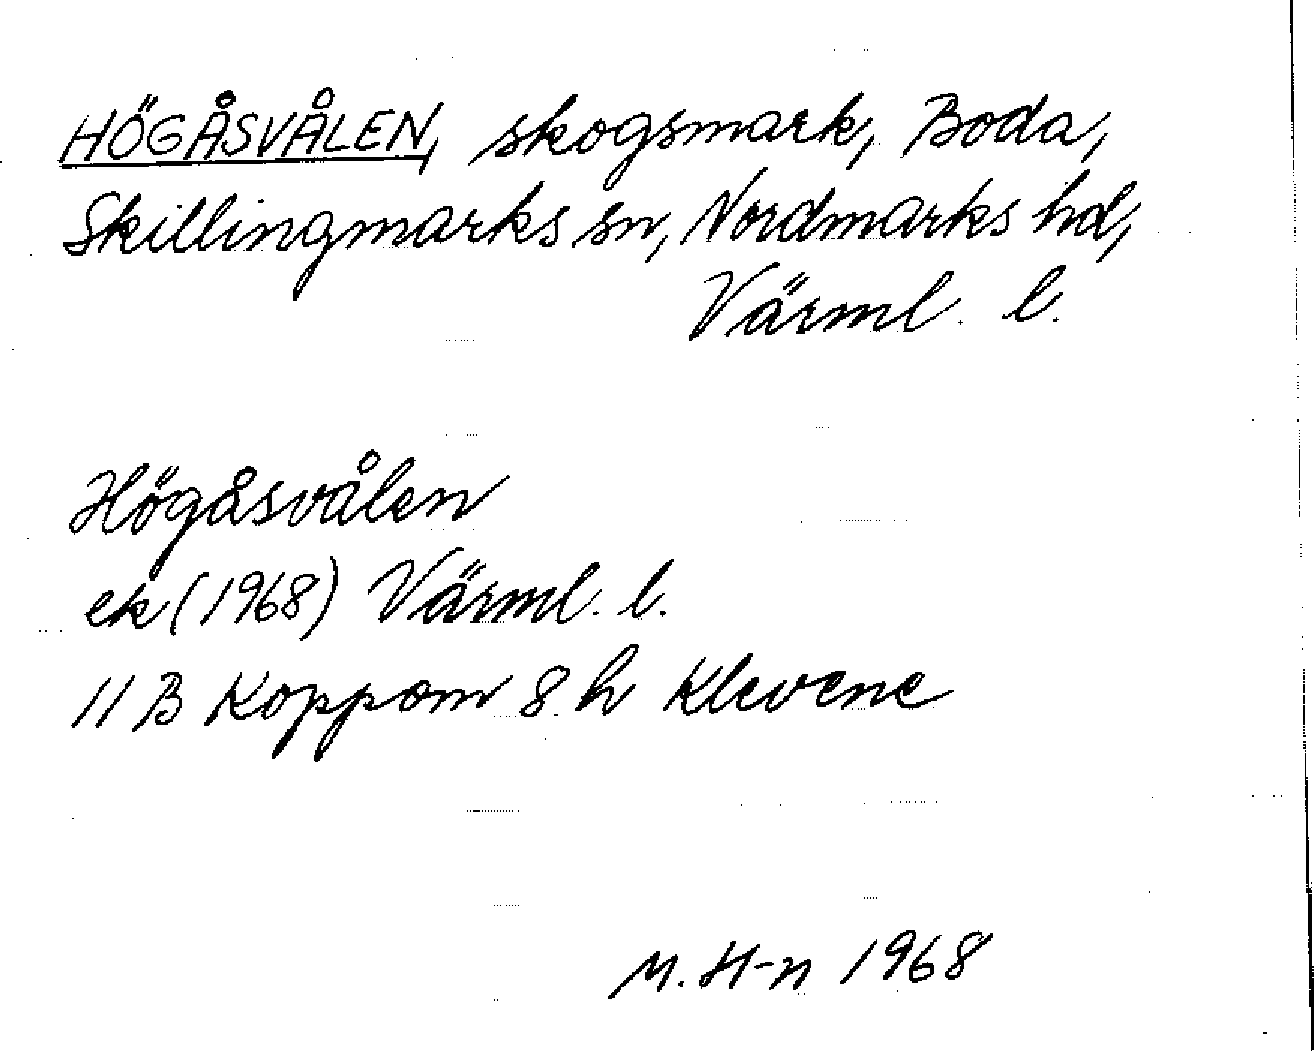 HÖGÅSVÅLEN, skogsmark, Boda,
Skillingmarks sn, Nordmarks hd,
Värml. l.
Högåsvålen
ek (1968) Värml. l.
11 B Koppom 8 h Klevene
M. H-n 1968